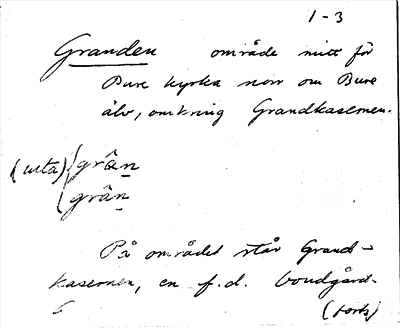 1-3
Granden område mitt för
Bure kyrka norr om Bure
älv, omkring Grandkasernen.
(uttal) grân
grân
På området står Grand-
kasernen, en f.d. bondgård.
(forts)